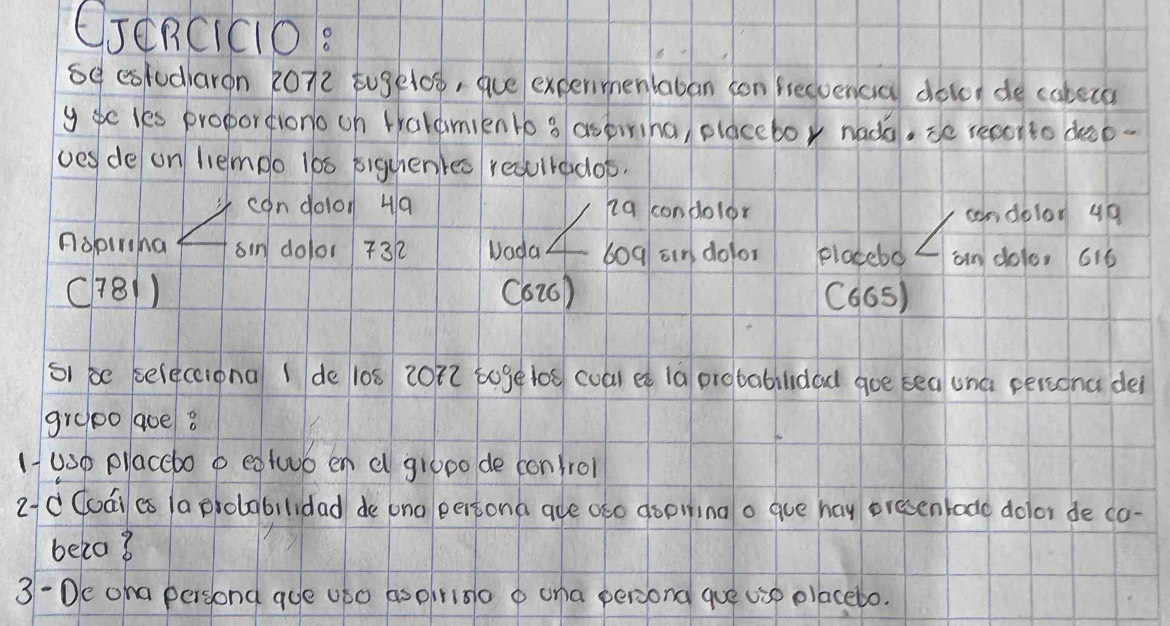 EJERCICIO:
se estudiaron 2072 sugetos, que experimentaban con frecuencia dolor de cabeza
y se les proporciono un tratamiento: aspirina, placebo y nada. se reporto desp-
ues de un tiempo los siguientes resultados.
con dolor 49 29 con dolor con dolor 49
Aspirina sin dolor 732 Nada 609 sin dolor placebo sin dolor 616
(781) (626) (665)
si se selecciona 1 de los 2072 sugetos cual es la probabilidad que sea una persona del
grupo que:
1- uso placebo o estuvo en el grupo de control
2- ¿Cuál es la probabilidad de una persona que uso aspirina o que hay presentado dolor de ca-
beza?
3- De una persona que uso aspirina o una persona que uso placebo.